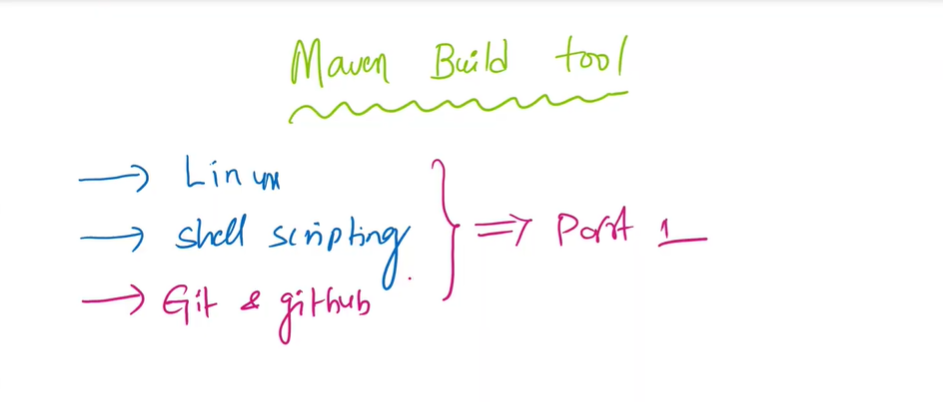 Maven Build tool
→ Linux
→ shell scripting.
→ Git & github
} ⇒ Part 1